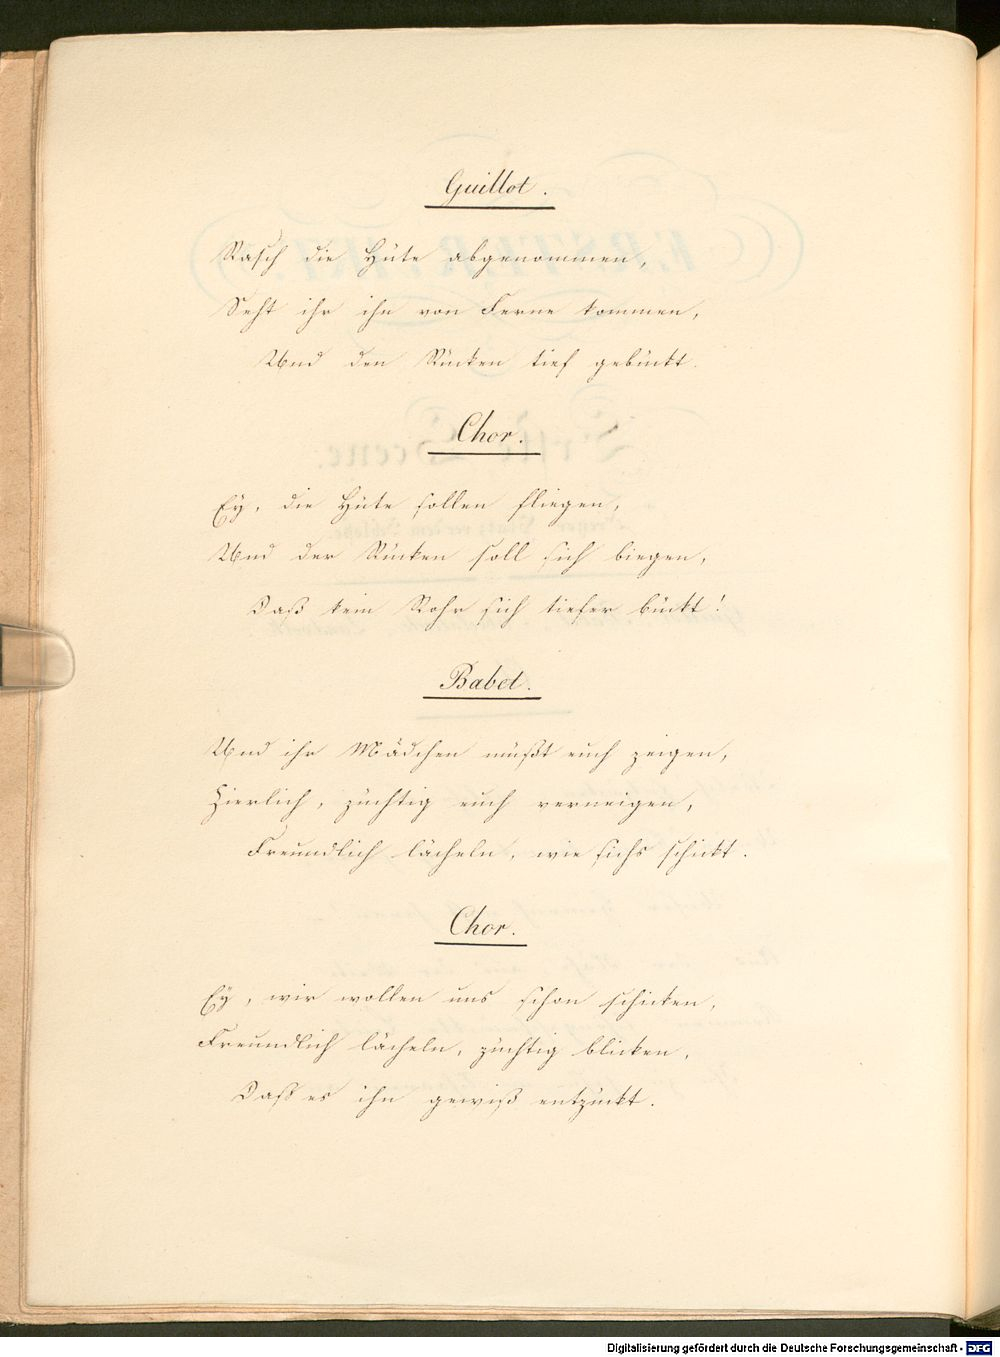 Guillot.
Rasch die Hüte abgenommen,
Seht ihr ihn von Ferne kommen,
Und den Rücken tief gebückt.
Chor.
Ey, die Hüte sollen fliegen,
Und der Rücken soll sich biegen,
Daß kein Rohr sich tiefer bückt!
Babet.
Und ihr Mädchen müßt euch zeigen,
Zierlich, züchtig euch verneigen,
Freundlich lächeln, wie sichs schickt.
Chor.
Ey, wir wollen uns schon schicken,
Freundlich lächeln, züchtig blicken,
Daß es ihn gewiß entzückt.
Digitalisierung gefördert durch die Deutsche Forschungsgemeinschaft - DFG